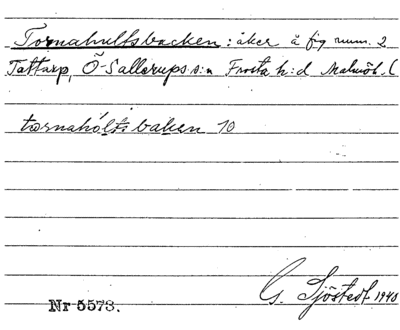 Tornahultsbacken: åker å fig num. 2
Tattarp, Ö-Sallerups s:n Frosta h:d Malmöh. l
tornahóltsbaken 10
G. Sjöstedt 1940
Nr 5573.